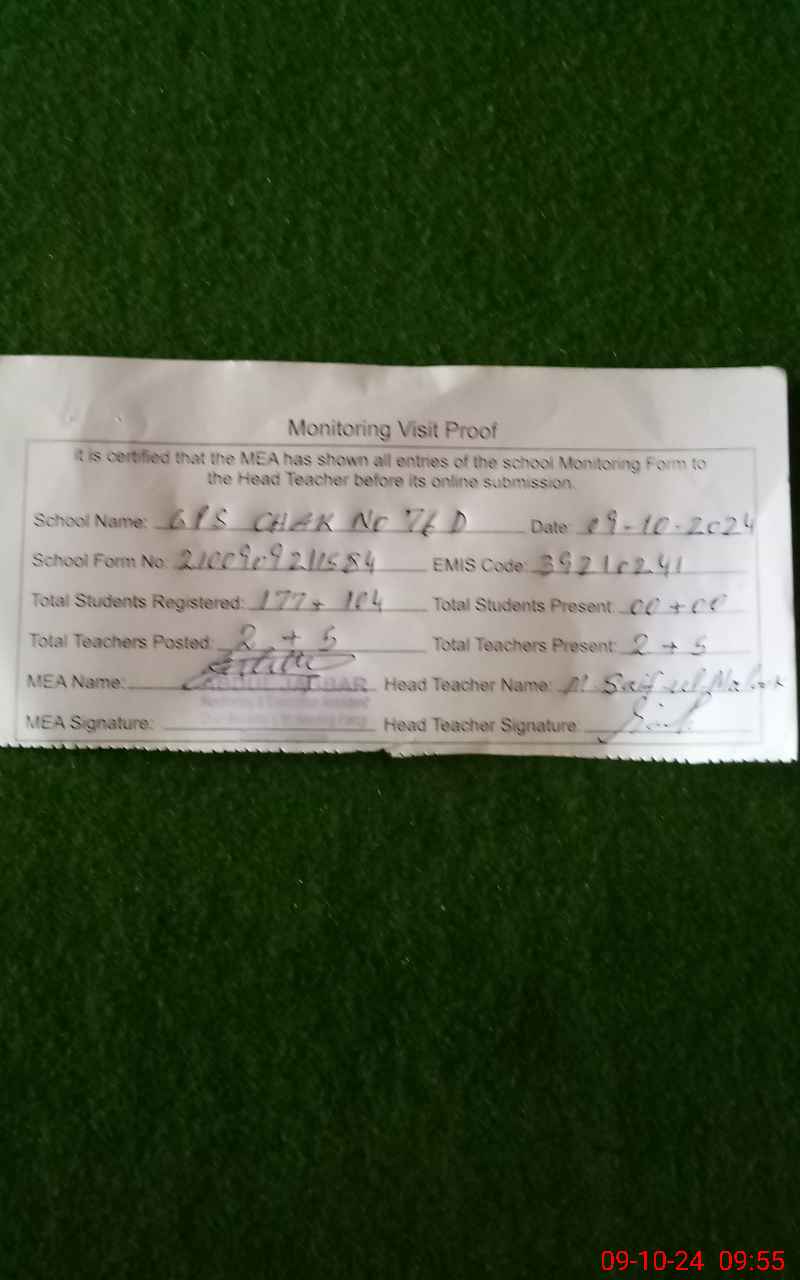 Monitoring Visit Proof
It is certified that the MEA has shown all entries of the school Monitoring Form to
the Head Teacher before its online submission.
School Name: GPS CHAK NO 76 D Date: 09-10-2024
School Form No: EMIS Code: 39210241
Total Students Registered: 177+104 Total Students Present: 00+00
Total Teachers Posted: 2+5 Total Teachers Present: 2+5
MEA Name: ABDUL JABBAR Head Teacher Name: M. Saif ul Malook
MEA Signature: Head Teacher Signature:
09-10-24 09:55